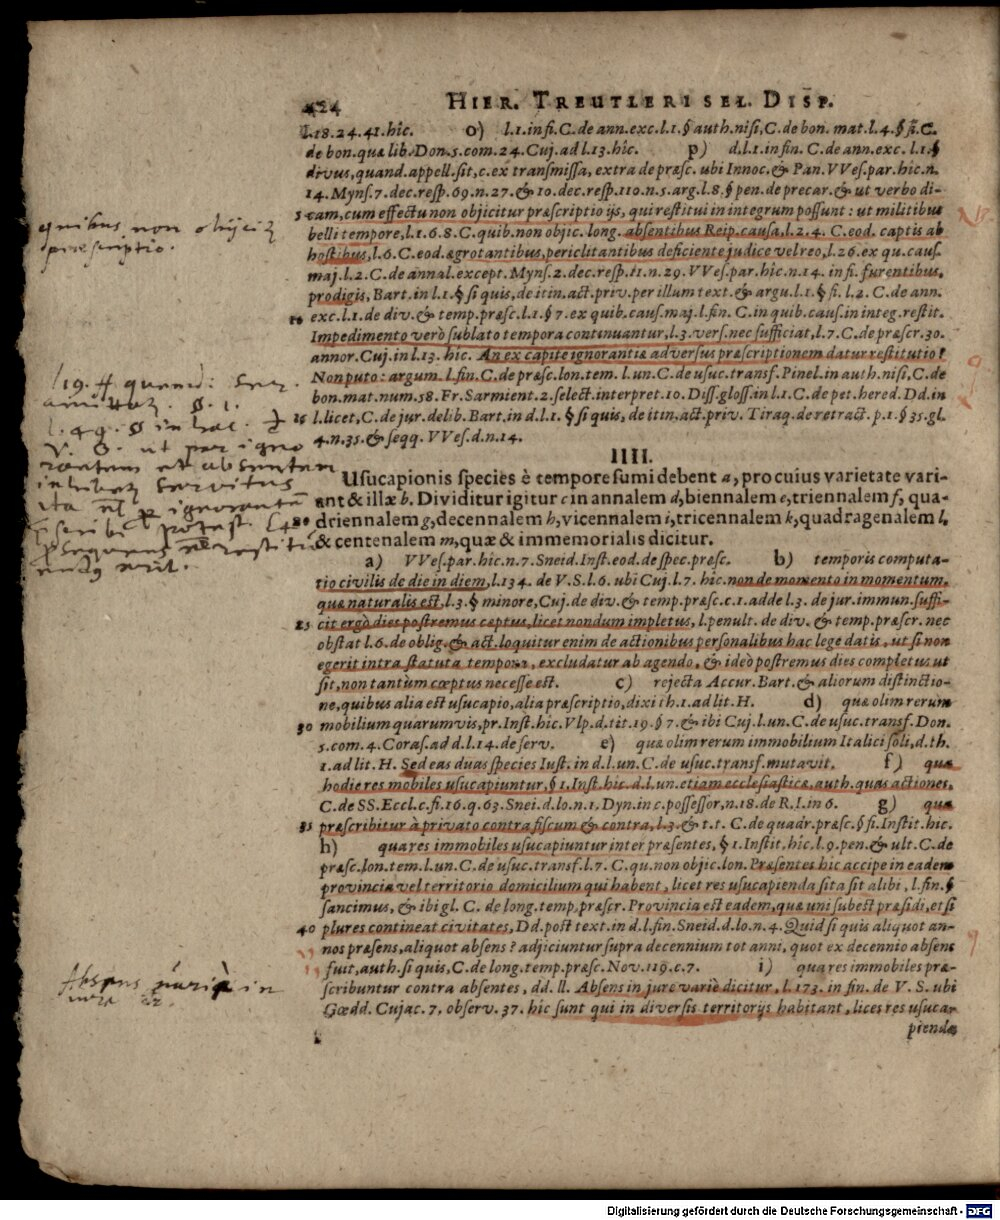 424 HIER. TREUTLERI SEL. DISP.
l.18.24.41.hîc. o) l.1.in fi.C.de ann.exc.l.1.§ auth.nisi,C.de bon. mat.l.4.§ fi.C.
de bon.quæ lib.Don.5.com.24.Cuj.ad l.13.hîc. p) d.l.1.in fin. C.de ann.exc. l.1.§
divus,quand.appell.sit,c.ex transmissa,extra de præsc. ubi Innoc.& Pan.VVes.par.hic.n.
14.Myns.7.dec.resp.69.n.27.& 10.dec.resp.110.n.5.arg.l.8.§ pen.de precar.& ut verbo di-
5 cam,cum effectu non objicitur præscriptio ijs,qui restitui in integrum possunt: ut militibus
belli tempore,l.1.6.8.C.quib.non objic.long. absentibus Reip.causa,l.2.4. C.eod. captis ab
hostibus,l.6.C.eod.ægrotantibus,periclitantibus deficiente judice vel reo,l.26.ex qu.caus.
maj.l.2.C.de annal.except.Myns.2.dec.resp.11.n.29.VVes.par.hîc.n.14.in fi.furentibus,
prodigis,Bart.in l.1.§ si quis,de itin.act.priv.per illum text.& argu.l.1.§ fi.l.2. C.de ann.
10 exc.l.1.de div.& temp.præsc.l.1.§ 7.ex quib.caus.maj.l.fin. C.in quib.caus.in integ.restit.
Impedimento verò sublato tempora continuantur,l.3.vers.nec sufficiat,l.7.C.de præscr.30.
annor.Cuj.in l.13. hic. An ex capite ignorantiæ adversus præscriptionem datur restitutio?
Non puto: argum.l.fin.C.de præsc.lon.tem.l.un.C.de usuc.transf.Pinel.in auth.nisi,C.de
bon.mat.num.58.Fr.Sarmient.2.select.interpret.10.Diss.gloss.in l.1.C.de pet.hered.Dd.in
15 l.licet,C.de jur.delib.Bart.in d.l.1. § si quis,de itin.act.priv. Tiraq.de retract.p.1.§ 35.gl.
4.n.35.& seqq.VVes.d.n.14.
IIII.
Usucapionis species è tempore sumi debent a, pro cuius varietate vari-
ant & illæ b. Dividitur igitur c in annalem d, biennalem e, triennalem f, qua-
20 driennalem g, decennalem h, vicennalem i, tricennalem k, quadragenalem l,
& centenalem m, quæ & immemorialis dicitur.
a) VVes.par.hîc.n.7.Sneid.Inst.eod.de spec.præsc. b) temporis computa-
tio civilis de die in diem,l.134. de V.S.l.6. ubi Cuj.l.7. hîc.non de momento in momentum,
quæ naturalis est,l.3.§ minore,Cuj.de div.& temp.præsc.c.1.adde l.3. de jur.immun.suffi-
25 cit ergò dies postremus cæptus,licet nondum impletus, l.penult. de div.& temp.præscr.nec
obstat l.6.de oblig.& act.loquitur enim de actionibus personalibus hac lege datis, ut si non
egerit intra statuta tempora, excludatur ab agendo, & ideò postremus dies completus ut
sit,non tantùm cæptus necesse est. c) rejecta Accur.Bart.& aliorum distinctio-
ne,quibus alia est usucapio,alia præscriptio,dixi th.1.ad lit.H. d) quæ olim rerum
30 mobilium quarumvis,pr.Inst.hic.Vlp.d.tit.19.§ 7.& ibi Cuj.l.un.C.de usuc.transf.Don.
5.com.4.Coras.ad d.l.14.de serv. e) quæ olim rerum immobilium Italici soli,d.th.
1.ad lit.H. Sed eas duas species Iust.in d.l.un.C.de usuc.transf.mutavit. f) quæ
hodie res mobiles usucapiuntur,§ 1.Inst.hic.d.l.un.etiam ecclesiasticæ,auth.quas actiones,
C.de SS.Eccl.c.fi.16.q.63.Snei.d.lo.n.1.Dyn.in c.possessor,n.18.de R.I.in 6. g) qua
35 præscribitur à privato contra fiscum & contra,l.3.& t.t. C.de quadr.præsc.§ fi.Instit.hic.
h) qua res immobiles usucapiuntur inter præsentes, § 1.Instit.hîc.l.9.pen.& ult.C.de
præsc.lon.tem.l.un.C.de usuc.transf.l.7. C.qu.non objic.lon.Præsentes hic accipe in eadem
provincia vel territorio domicilium qui habent, licet res usucapienda sita sit alibi, l.fin.§
sancimus, & ibi gl. C. de long.temp.præscr.Provincia est eadem,quæ uni subest præsidi,et si
40 plures contineat civitates,Dd.post text.in d.l.fin.Sneid.d.lo.n.4.Quid si quis aliquot an-
nos præsens,aliquot absens? adjiciuntur supra decennium tot anni, quot ex decennio absens
fuit,auth.si quis,C.de long.temp.præsc.Nov.119.c.7. i) qua res immobiles præ-
scribuntur contra absentes, dd.ll. Absens in jure variè dicitur, l.173. in fin. de V. S. ubi
Gœdd.Cujac.7. observ.37. hîc sunt qui in diversis territorijs habitant, licet res usuca-
pienda
quibus non obijcit
præscriptio.
ut per igno
rantem et absentem
servitus
ita
potest
erit.
Absens variè in
jure
Digitalisierung gefördert durch die Deutsche Forschungsgemeinschaft - DFG